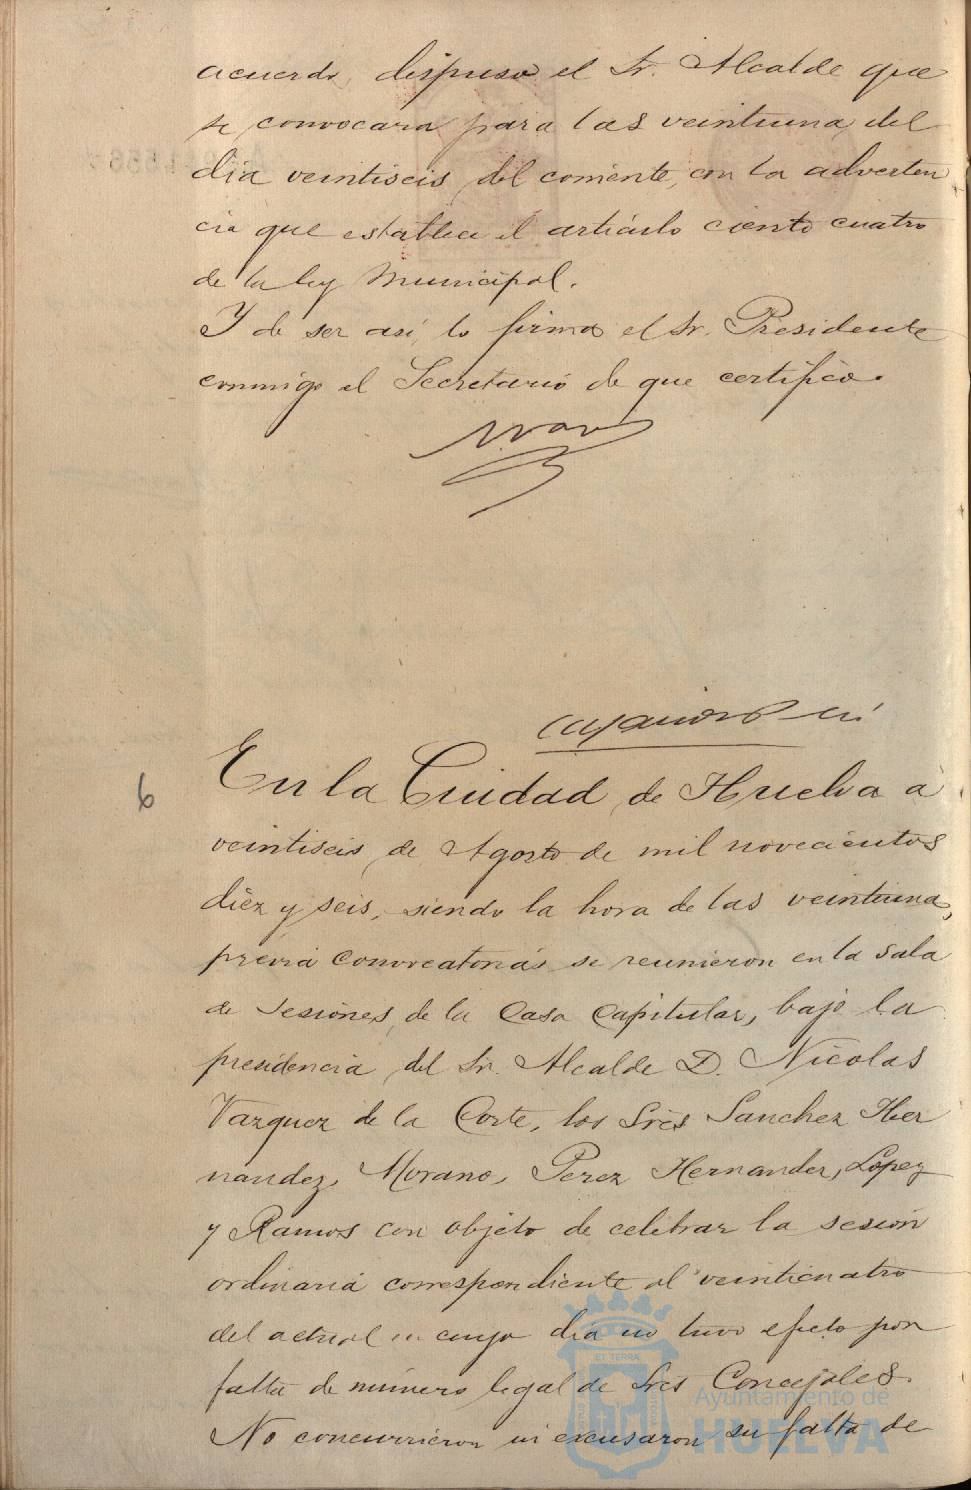 acuerdo, dispuso el Sr. Alcalde que
se convocara para las veintiuna del
dia veintiseis del corriente, con la adverten
cia que establece el articulo ciento cuatro
de la ley Municipal.
Y de ser asi, lo firma el Sr. Presidente
conmigo el Secretario de que certifico.
6
En la Ciudad de Huelva á
veintiseis de Agosto de mil novecientos
diez y seis, siendo la hora de las veintiuna,
previa convocatorias se reunieron en la Sala
de Sesiones de la Casa Capitular, bajo la
presidencia del Sr. Alcalde D. Nicolas
Vazquez de la Corte, los Sres Sanchez Her
nandez, Morano, Perez Hernandez, López
y Ramos con objeto de celebrar la sesión
ordinaria correspondiente al veinticuatro
del actual en cuyo dia no tuvo efecto por
falta de número legal de Sres Concejales.
No concurrieron ni excusaron su falta de
EL TERRÆ
Ayuntamiento de
HUELVA